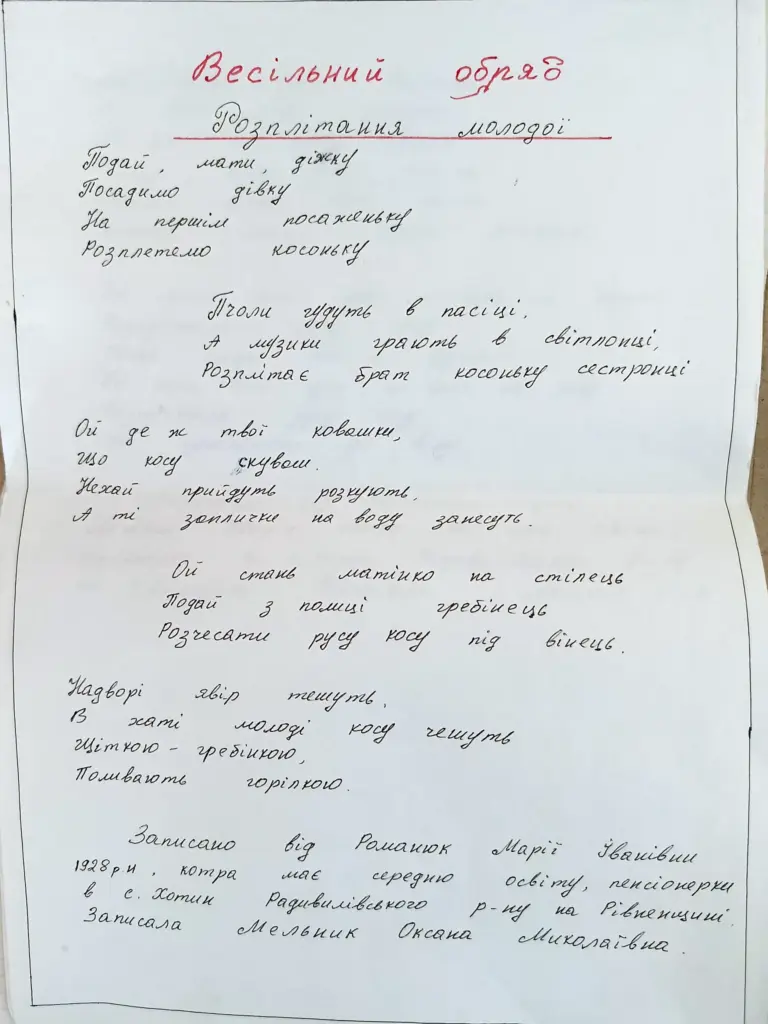 Весільний обряд
Розплітання молодої
Подай, мати, діжку
Посадимо дівку
На першім посаженьку
Розплетемо косоньку
Пчоли гудуть в пасіці,
А музики грають в світлонці,
Розплітає брат косоньку сестронці
Ой де ж твої ковалики,
Що косу скували.
Нехай прийдуть розкують,
А ті заплички на воду занесуть.
Ой стань матінко на стілець
Подай з полиці гребінець
Розчесати русу косу під вінець.
Надворі явір тешуть,
В хаті молоді косу чешуть
Щіткою - гребінкою,
Поливають горілкою.
Записано від Романюк Марії Іванівни
1928 р.н, котра має середню освіту, пенсіонерки
в с. Хотин Радивилівського р-ну на Рівненщині.
Записала Мельник Оксана Миколаївна.